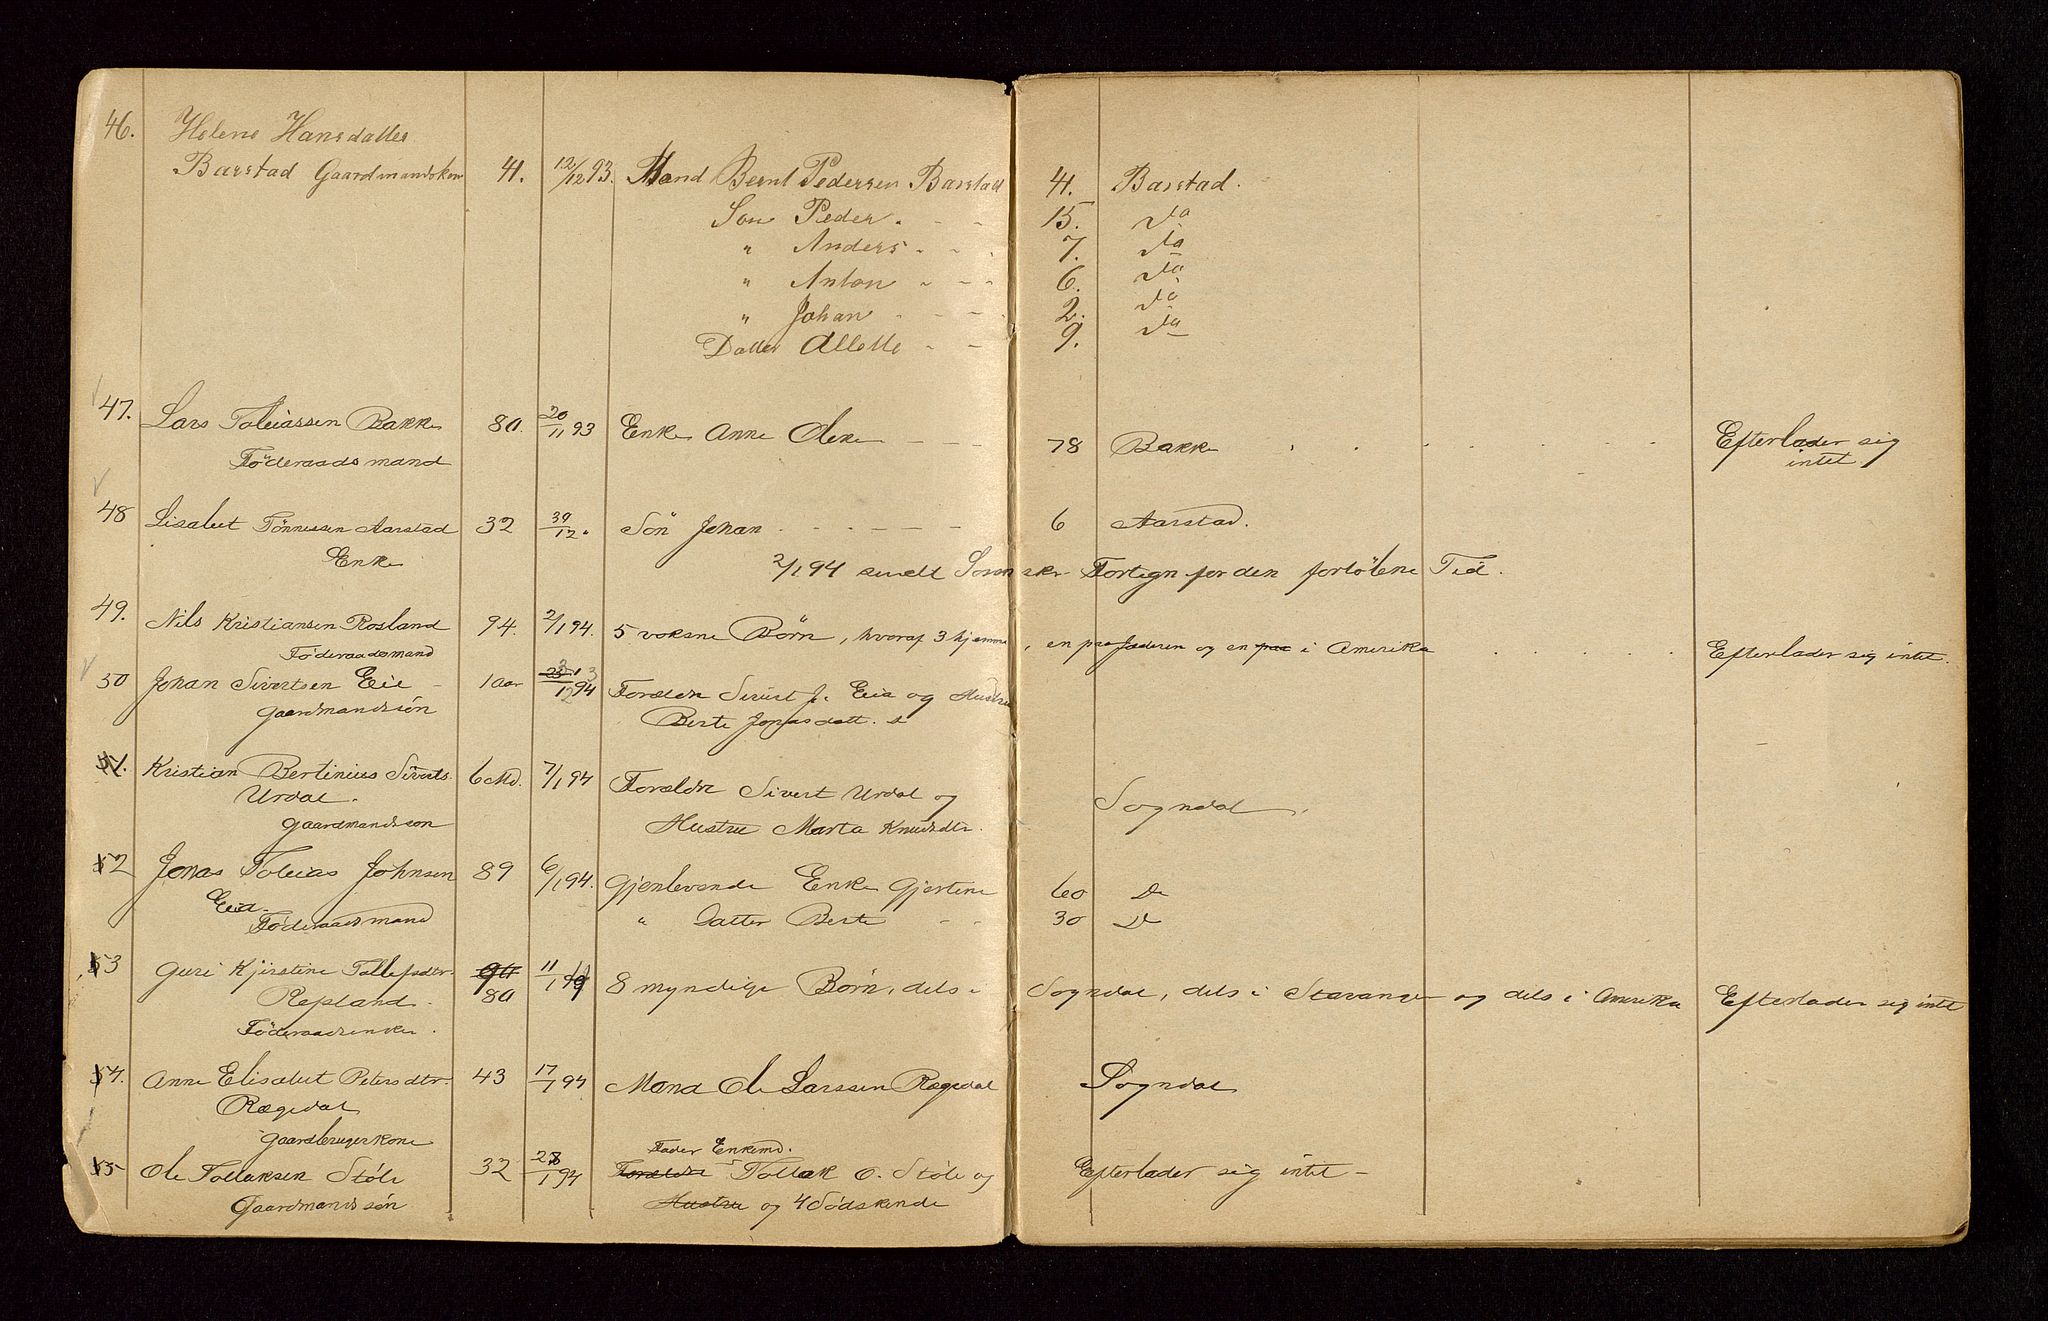 46. Helene Hansdatter
Barstad Gaardmandskon 41. 12/12 93. Mand Bernt Pedersen Barstad 41. Barstad.
Søn Peder. - - 15. Do
" Anders - - 7. Do
" Anton - - - 6. Do
" Johan - - - 2. Do
Datter Allette - - 9. Do
47. Lars Tobiassen Bakke 80. 20/11 93 Enke Anne Oline - - - 78 Bakke Efterlader sig
Föderaadsmand intet
48 Lisabet Tönnessen Aarstad 32 /12 " Sön Johan - - - - - 6 Aarstad.
Enke
2/1 94 sendt Sorenskr Fortegn for den forløbne Tid.
49. Nils Kristiansen Rosland 94. 2/1 94. 5 voksne Børn, hvoraf 3 hjemme, en paa Jæderen og en paa i Amerika Efterlader sig intet.
Föderaadsmand
50 Johan Sivertsen Eie 1 Aar 94 Forældre Sivert J. Eia og Hustru
Gaardmandssön Berte Jonasdatt.
51. Kristian Bertinius Siverts. 6 Md. 7/1 94 Forældre Sivert Urdal og Sogndal.
Urdal.
Gaardmandsson Hustru Marta Knudsdtr.
52 Jonas Tobias Johnsen 89 6/1 94. Gjenlevende Enke Gjertine 60 Do
Eia.
Föderaadsmand " Datter Berte - 30 Do
53 Guri Kjirstine Tollefsdtr. 94 11/1 94 8 myndige Børn, dels i Sogndal, dels i Stavanger og dels i Amerika Efterlader sig intet
Repland. 80
Föderaadsenke.
54. Anne Elisabet Petersdtr. 43 17/1 94 Mand Ole Larssen Rægedal Sogndal
Rægedal
Gaardbrugerkone
Fader Enkemd.
55 Ole Tollaksen Stöle 32 28/1 94 Forældre Tollak O. Stöle og Efterlader sig intet -
Gaardmandssön Hustru og 4 Södskende